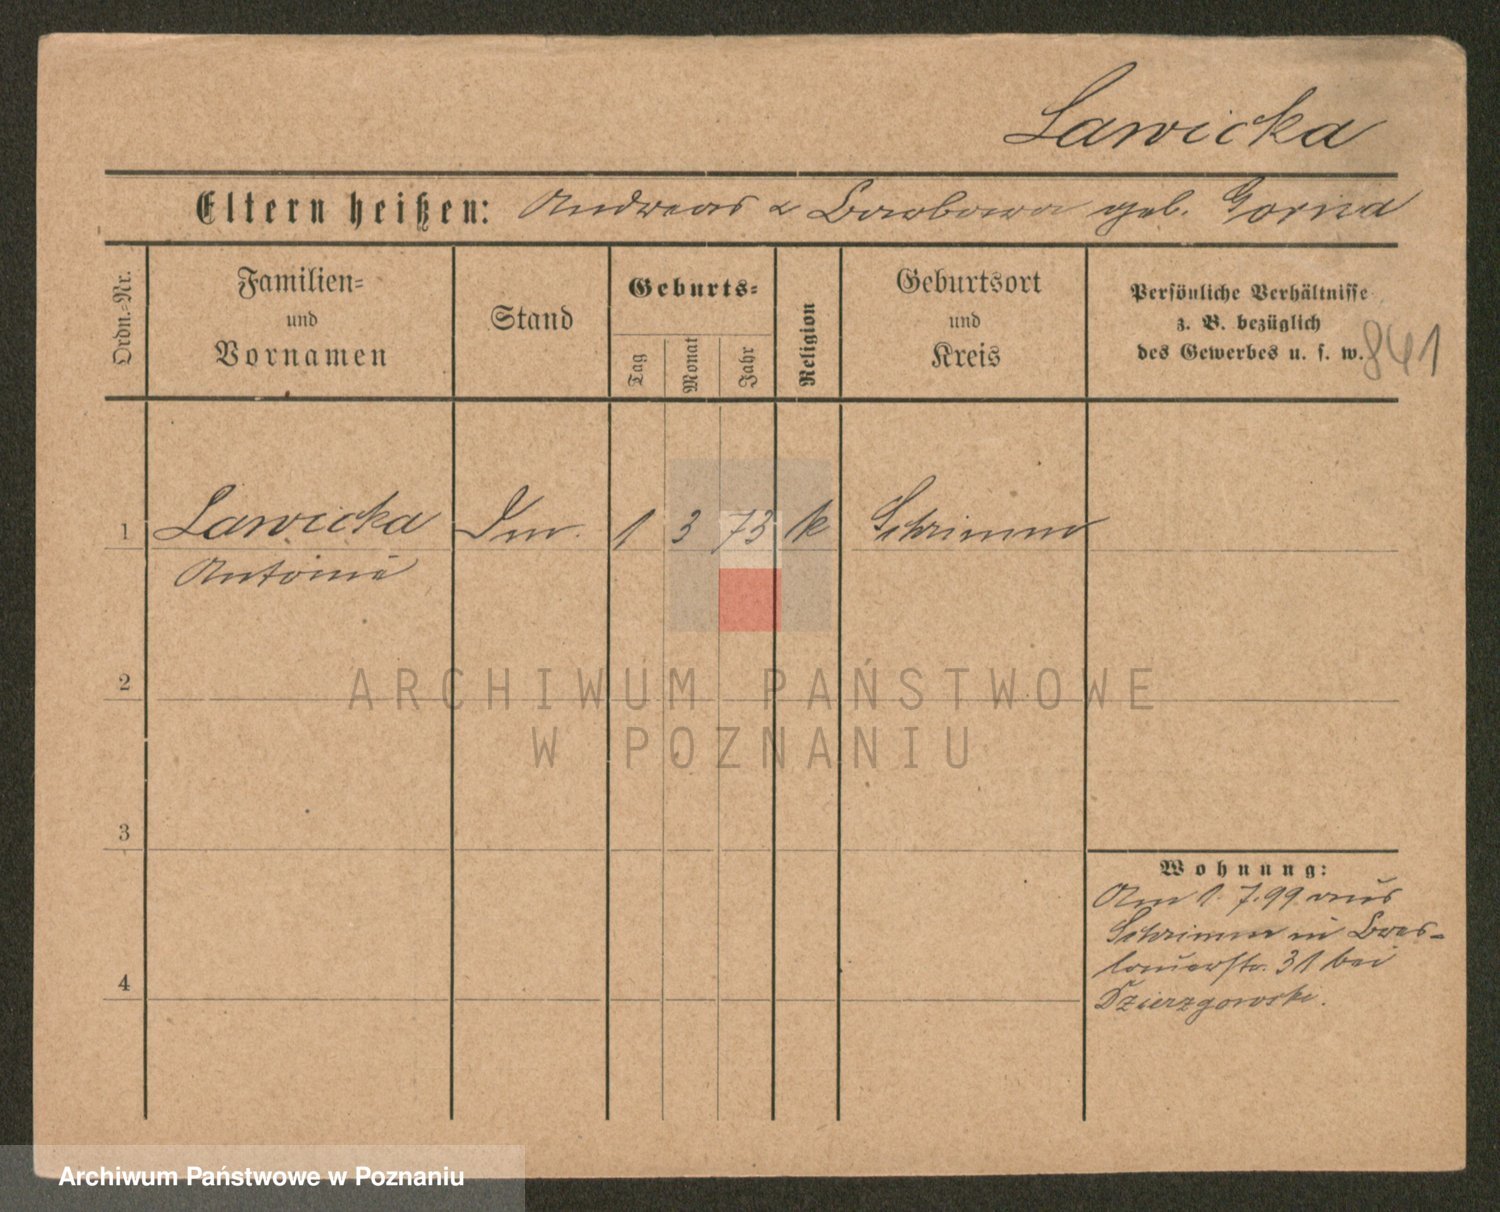 Lawicka
Eltern heißen: Andreas & Barbara geb. Gorna
Ordn.-Nr.
Familien-
und
Vornamen
Stand
Geburts-
Tag
Monat
Jahr
Religion
Geburtsort
und
Kreis
Persönliche Verhältnisse
z. B. bezüglich
des Gewerbes u. s. w.
841
1 Lawicka 1 3 73 k Schrimm
Antonie
2
ARCHIWUM PAŃSTWOWE
W POZNANIU
3
Wohnung:
Am 1.7.99 aus
Schrimm in Bres-
lauerstr. 31 bei
Dzierzgowski.
4
Archiwum Państwowe w Poznaniu